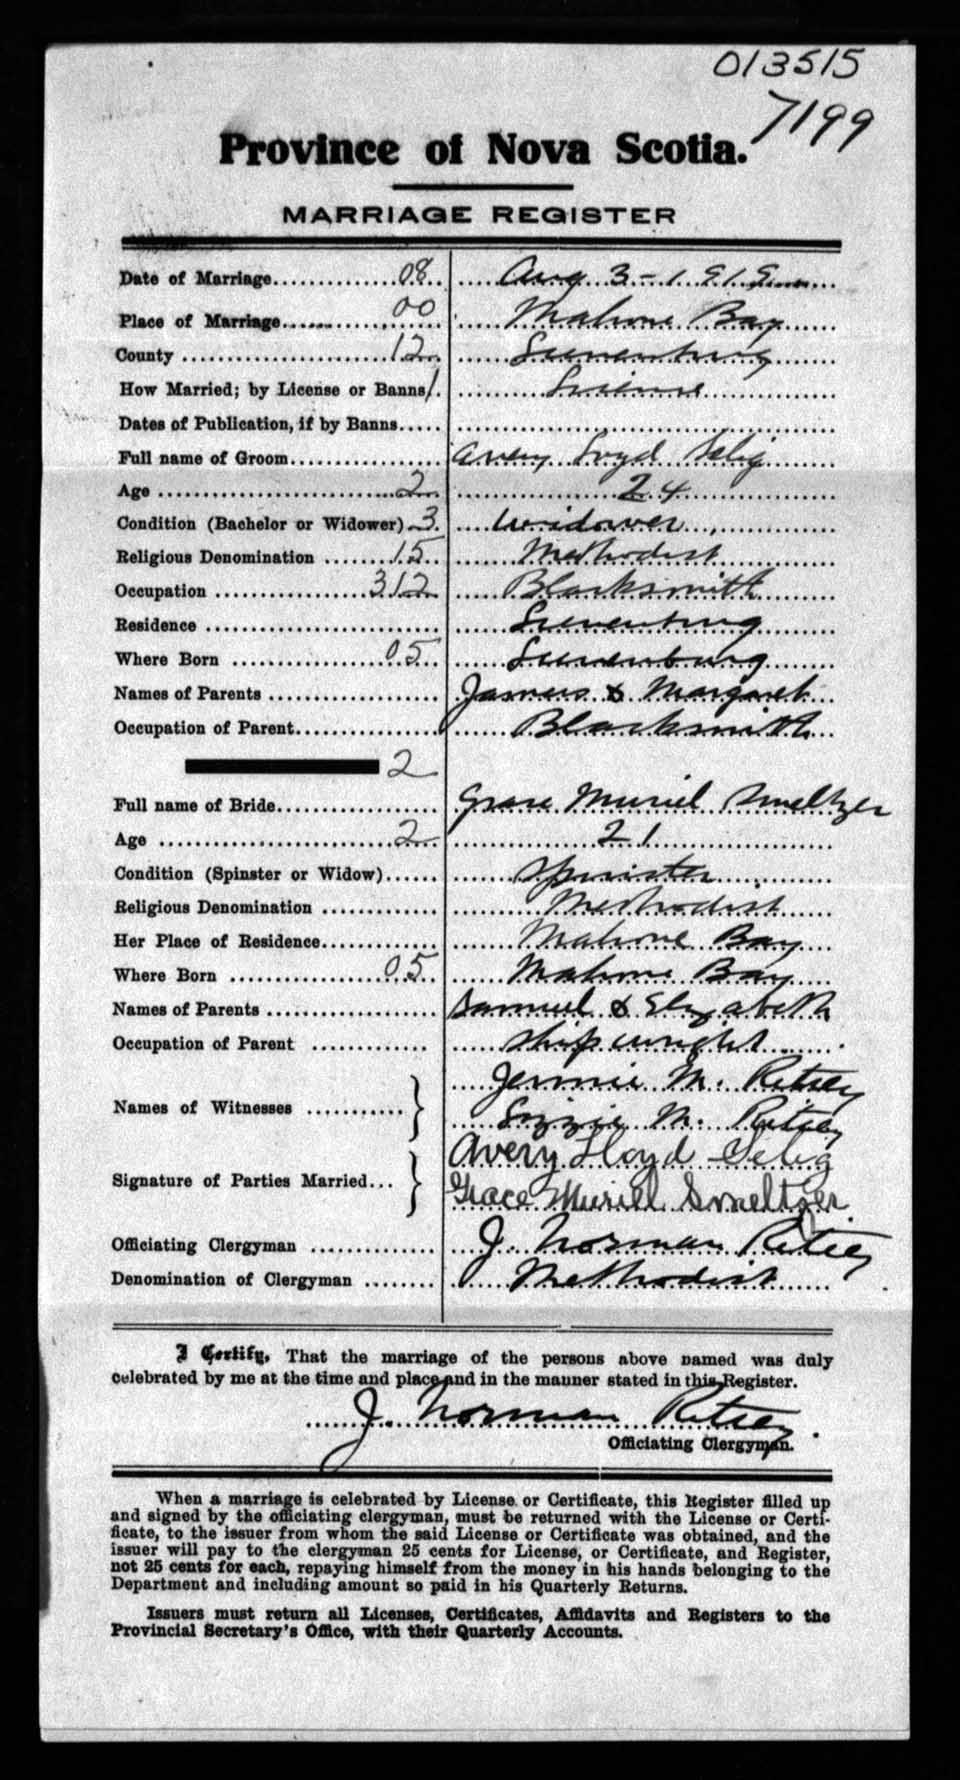 013515
7199
Province of Nova Scotia.
MARRIAGE REGISTER
Date of Marriage 08 Aug 3 - 191
Place of Marriage 00 Mahone Bay
County 12 Lunenburg
How Married; by License or Banns 1 License
Dates of Publication, if by Banns
Full name of Groom Avery Loyd Selig
Age 2 24
Condition (Bachelor or Widower) 3 widower
Religious Denomination 15 Methodist
Occupation 312 Blacksmith
Residence Lunenburg
Where Born 05 Lunenburg
Names of Parents & Margaret
Occupation of Parent Blacksmith
2
Full name of Bride Grace Muriel Smeltzer
Age 2 21
Condition (Spinster or Widow) Spinster
Religious Denomination Methodist
Her Place of Residence Mahone Bay
Where Born 05 Mahone Bay
Names of Parents Samuel & Elizabeth
Occupation of Parent shipwright
Names of Witnesses Jennie M. Ritcey
Lizzie M. Ritcey
Signature of Parties Married Avery Lloyd Selig
Grace Muriell Smeltzer
Officiating Clergyman J. Norman Ritcey
Denomination of Clergyman Methodist
I Certify, That the marriage of the persons above named was duly
celebrated by me at the time and place and in the manner stated in this Register.
J. Norman Ritcey.
Officiating Clergyman.
When a marriage is celebrated by License or Certificate, this Register filled up
and signed by the officiating clergyman, must be returned with the License or Certi-
ficate, to the issuer from whom the said License or Certificate was obtained, and the
issuer will pay to the clergyman 25 cents for License, or Certificate, and Register,
not 25 cents for each, repaying himself from the money in his hands belonging to the
Department and including amount so paid in his Quarterly Returns.
Issuers must return all Licenses, Certificates, Affidavits and Registers to the
Provincial Secretary's Office, with their Quarterly Accounts.